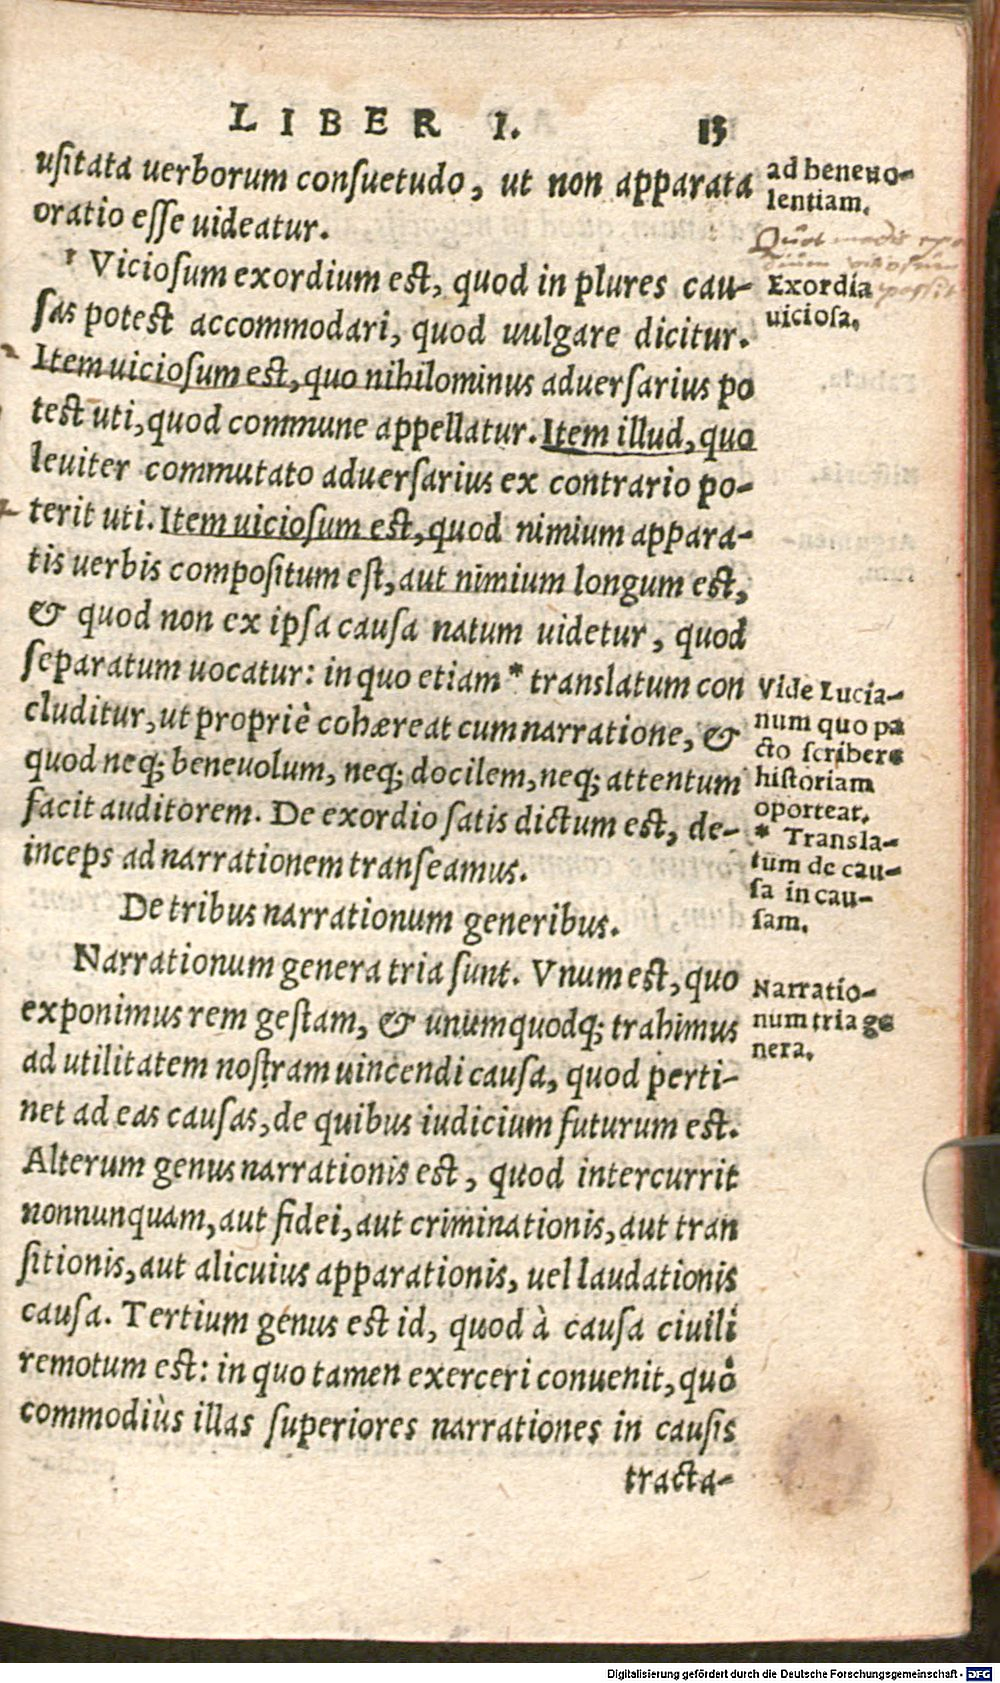 LIBER I. 13
usitata uerborum consuetudo, ut non apparata
oratio esse uideatur.
Viciosum exordium est, quod in plures cau-
sas potest accommodari, quod uulgare dicitur.
Item uiciosum est, quo nihilominus aduersarius po
test uti, quod commune appellatur. Item illud, quo
leuiter commutato aduersarius ex contrario po-
terit uti. Item uiciosum est, quod nimium appara-
tis uerbis compositum est, aut nimium longum est,
& quod non ex ipsa causa natum uidetur, quod
separatum uocatur: in quo etiam * translatum con
cluditur, ut propriè cohæreat cum narratione, &
quod neq; beneuolum, neq; docilem, neq; attentum
facit auditorem. De exordio satis dictum est, de-
inceps ad narrationem transeamus.
De tribus narrationum generibus.
Narrationum genera tria sunt. Vnum est, quo
exponimus rem gestam, & unumquodq; trahimus
ad utilitatem nostram uincendi causa, quod perti-
net ad eas causas, de quibus iudicium futurum est.
Alterum genus narrationis est, quod intercurrit
nonnunquam, aut fidei, aut criminationis, aut tran
sitionis, aut alicuius apparationis, uel laudationis
causa. Tertium genus est id, quod à causa ciuili
remotum est: in quo tamen exerceri conuenit, quò
commodiùs illas superiores narrationes in causis
tracta-
ad beneuo-
lentiam.
Quot modis
uitiosum
possit
Exordia
uiciosa.
Vide Lucia-
num quo pa
cto scribere
historiam
oporteat.
* Transla-
tum de cau-
sa in cau-
sam.
Narratio-
num tria ge
nera.
Digitalisierung gefördert durch die Deutsche Forschungsgemeinschaft - DFG